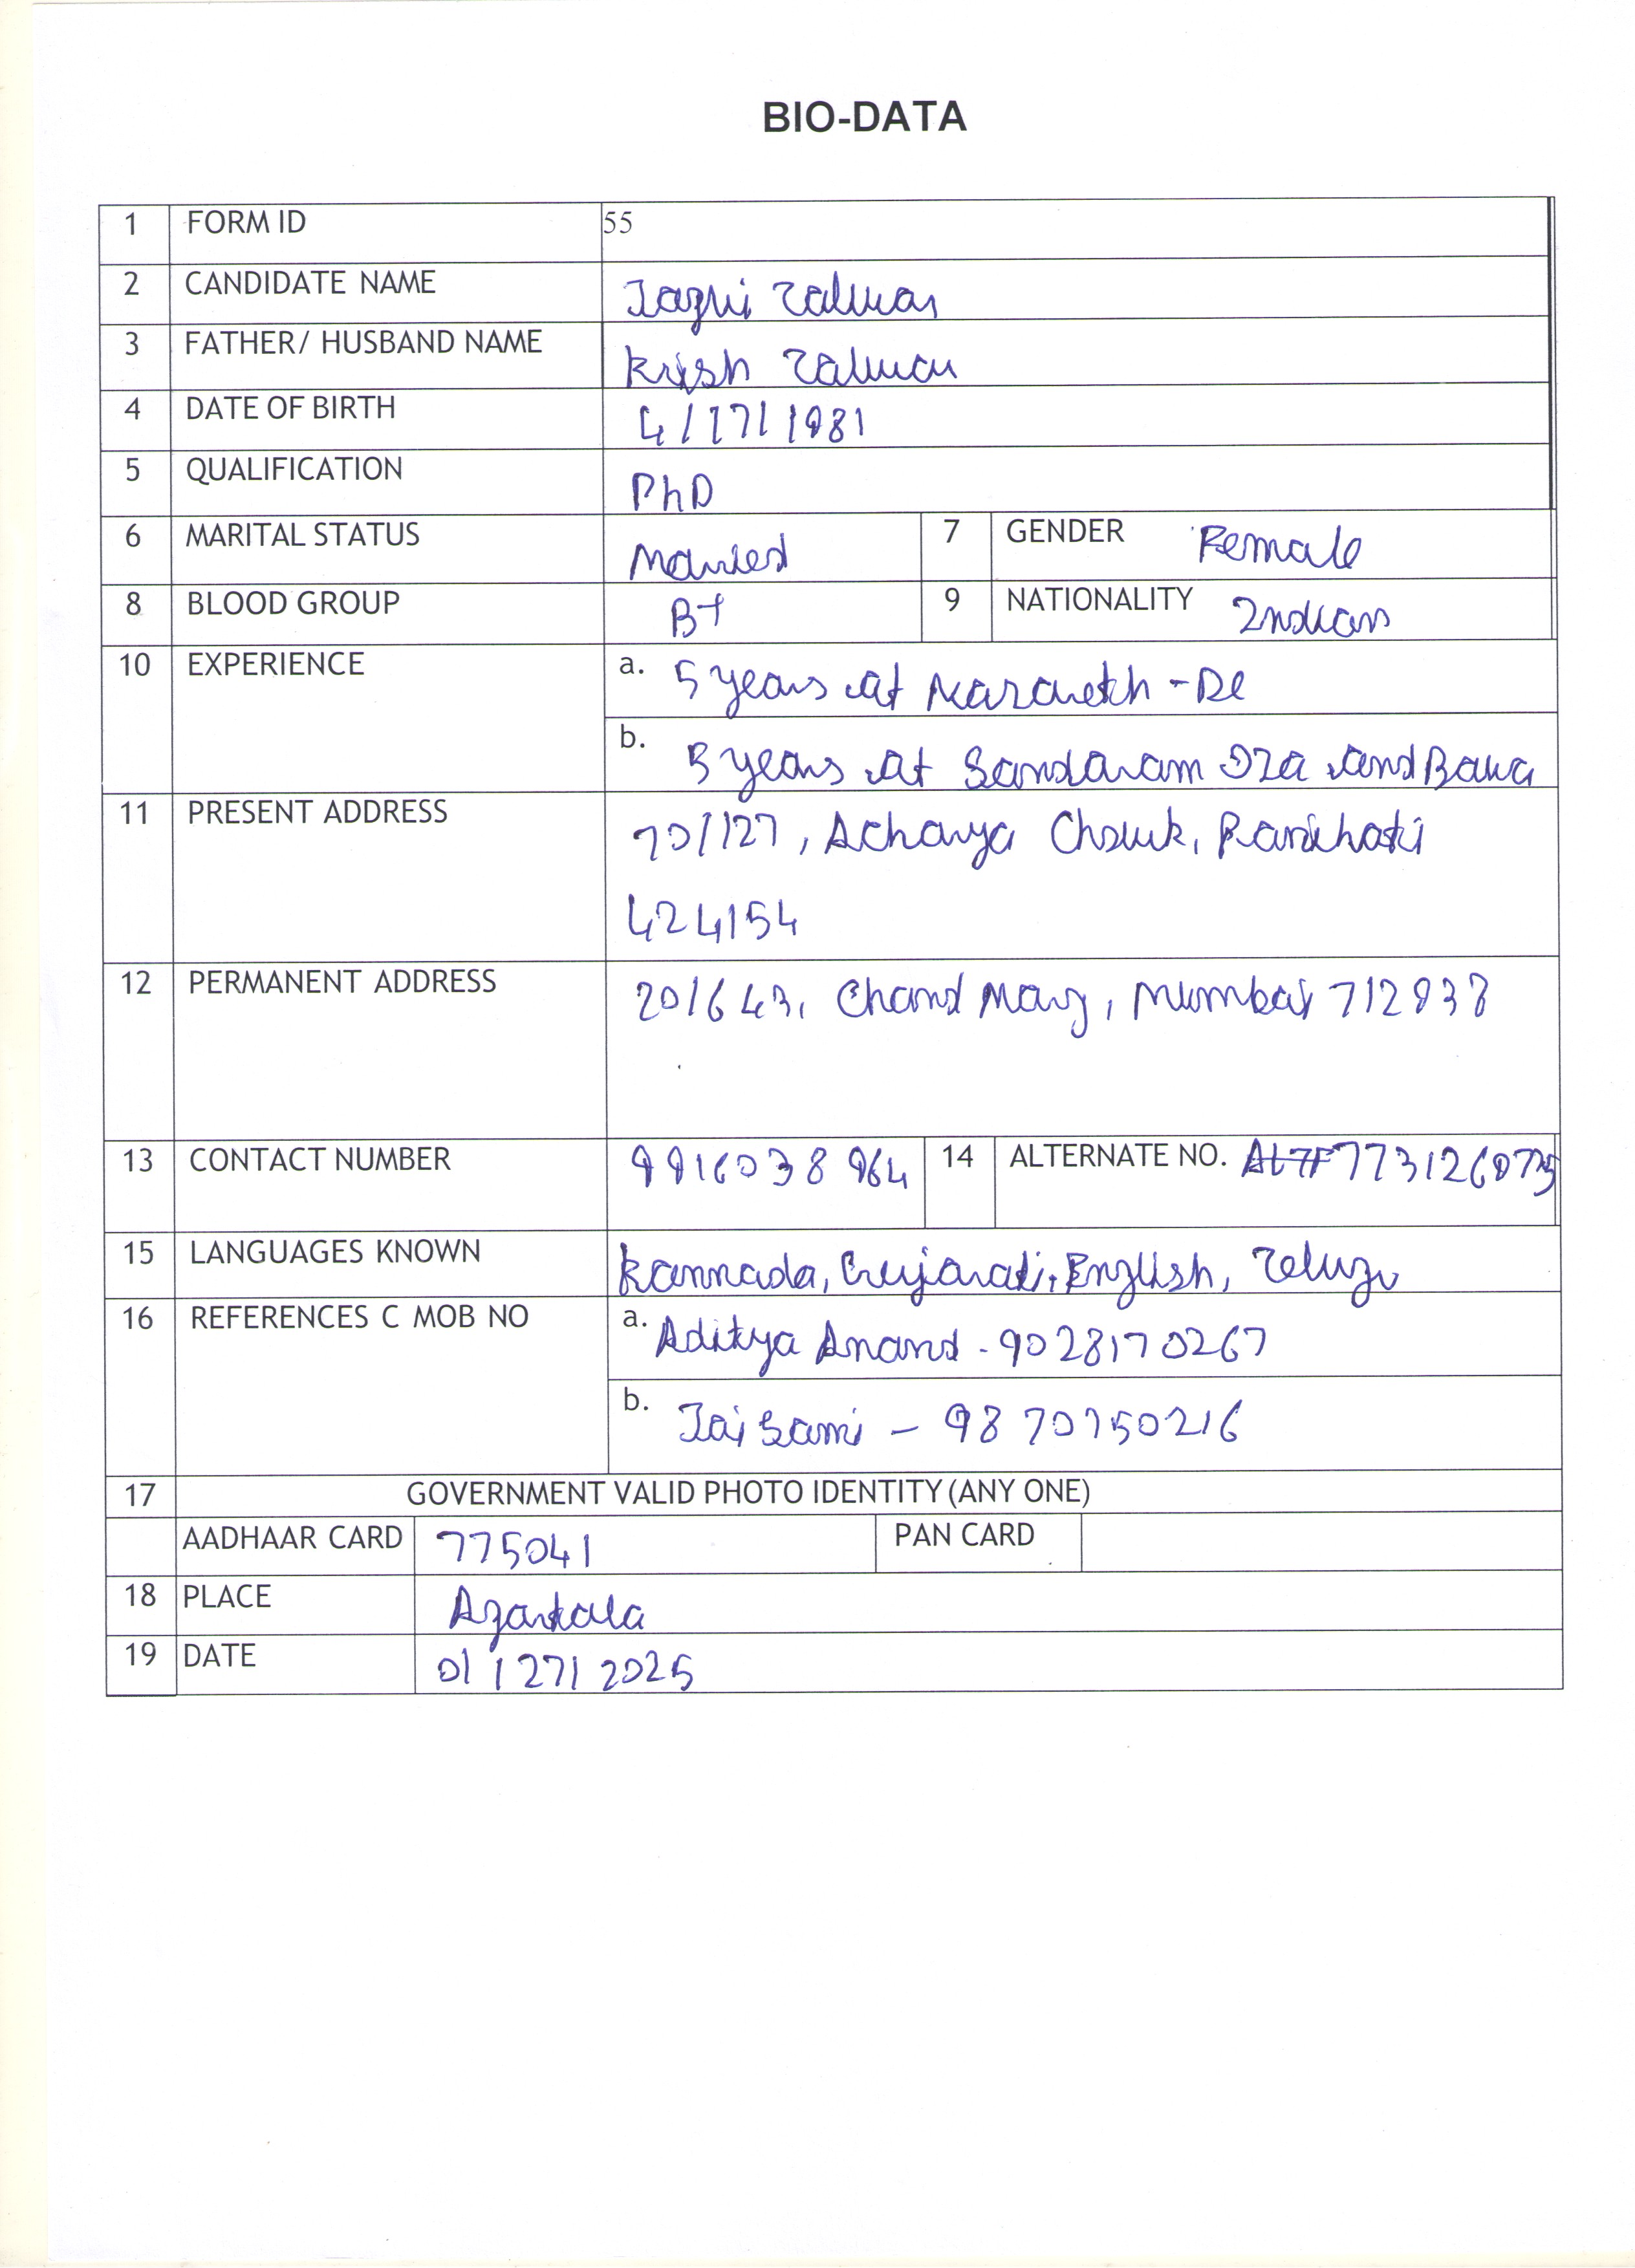 BIO-DATA
1 FORM ID 55
2 CANDIDATE NAME
3 FATHER/ HUSBAND NAME Krish
4 DATE OF BIRTH 4/17/1981
5 QUALIFICATION PhD
6 MARITAL STATUS Married 7 GENDER Female
8 BLOOD GROUP B+ 9 NATIONALITY Indian
10 EXPERIENCE a. 5 years at
b. 5 years at and
11 PRESENT ADDRESS Acharya Chowk, Panihati
424154
12 PERMANENT ADDRESS 20/643, Chand Marg, Mumbai
13 CONTACT NUMBER 9916038964 14 ALTERNATE NO.
15 LANGUAGES KNOWN Kannada, Gujarati, English, Telugu
16 REFERENCES C MOB NO a. Aditya Anand - 9028170267
b. Jai Sami -
17 GOVERNMENT VALID PHOTO IDENTITY (ANY ONE)
AADHAAR CARD 775041 PAN CARD
18 PLACE Agartala
19 DATE 01/27/2025